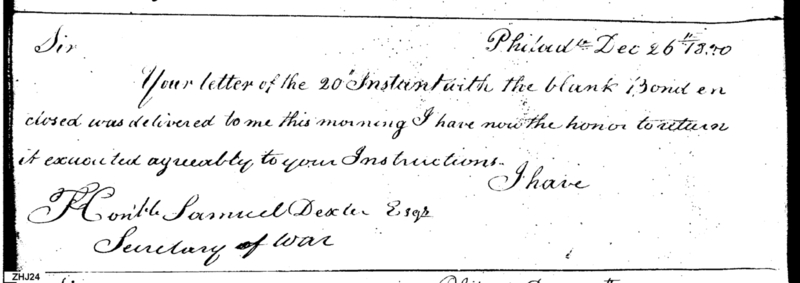 Philad.ª Dec 26th 1800
Sir
Your letter of the 20th Instant with the blank Bond en
closed was delivered to me this morning I have now the honor to return
it executed agreeably to your Instructions.
I have
Honble Samuel Dexter Esqr
Secretary of War
ZHJ24